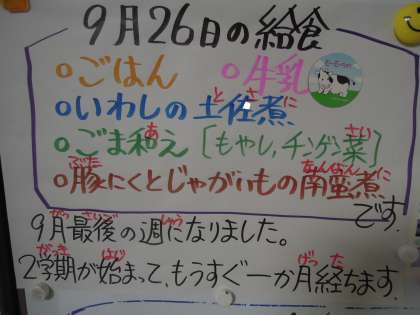 9月26日の給食
○ごはん ○牛乳
○いわしの土佐煮
○ごま和え〔もやし,チンゲン菜〕
○豚にくとじゃがいもの南蛮煮
です。
9月最後の週になりました。
2学期が始まって、もうすぐ一か月経ちます。